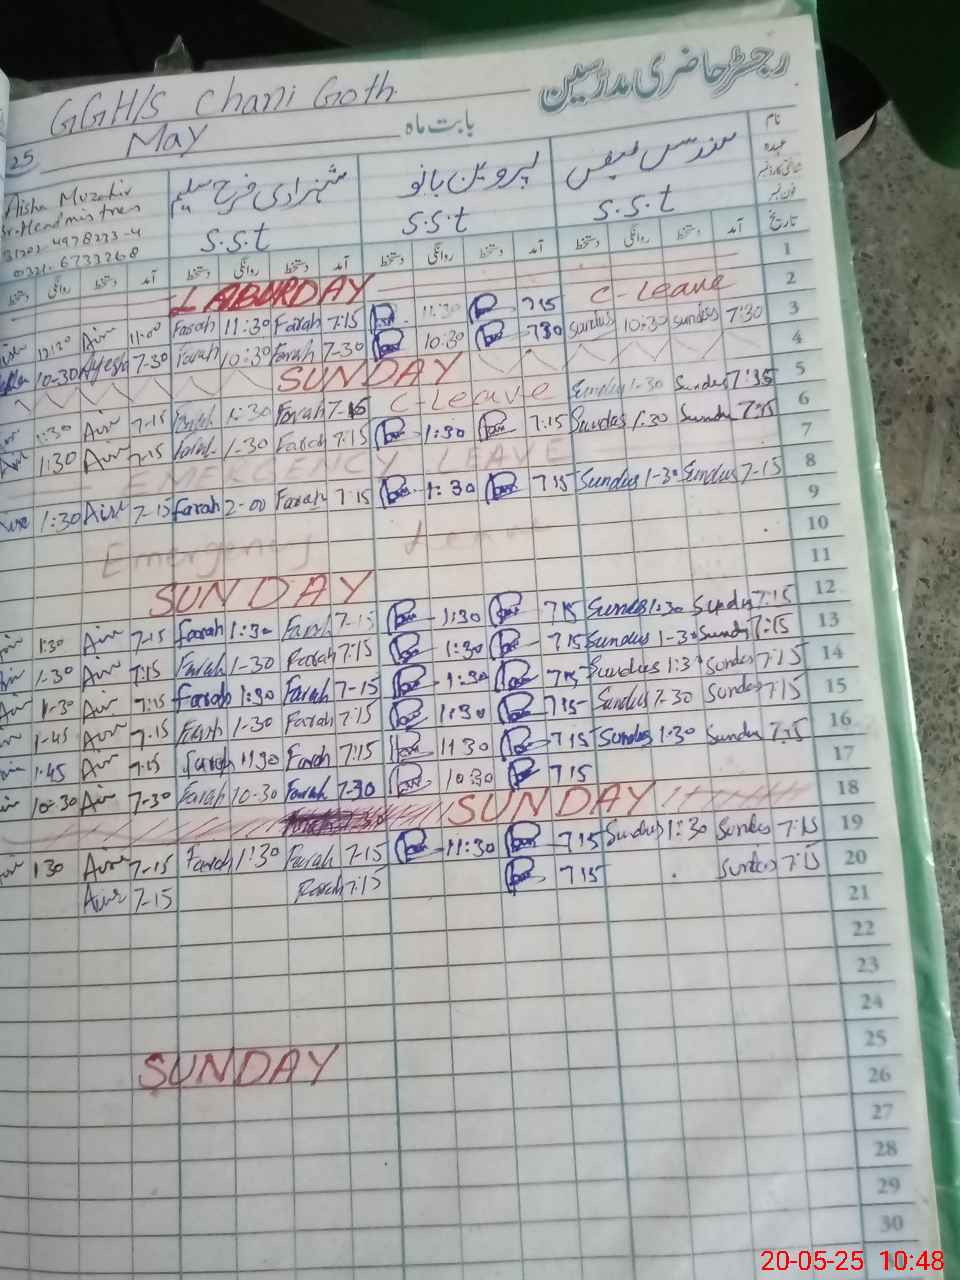 رجسٹر حاضری مدرسین
GGH/S Chani Goth
بابت ماہ May 25
نام
عہدہ
شناختی کارڈ نمبر
فون نمبر
سندس نفیس
پروین بانو
شہزادی فرح سلیم
Aisha Muzahir
Sr. Headmistress
31202-4978233-4
0321-6733268
S.S.t S.S.t S.S.t
تاریخ آمد دستخط روانگی دستخط آمد دستخط روانگی دستخط آمد دستخط روانگی دستخط آمد دستخط روانگی دستخط
1 LABURDAY
2 11:30 Farah 11:30 Farah 7:15 11:30 7 15 C-Leave
3 10-30 Ayesha 7-30 Farah 10:30 Farah 7-30 10:30 7 30 Sundus 10:30 Sundus 7:30
4 SUNDAY
5 1:30 Air 7-15 Farah 1:30 Farah 7-15 C-Leave Sundus 1-30 Sundus 7:15
6 1:30 Air 7-15 Farah 1-30 Farah 7:15 1:30 7:15 Sundus 1:30 Sundus 7:15
7 EMERGENCY LEAVE
8 1:30 Aire 7-15 Farah 2-00 Farah 7:15 1:30 7 15 Sundus 1-30 Sundus 7-15
9
10 Emergency Leave
11 SUNDAY
12 1:30 Air 7-15 Farah 1:30 Farah 7-15 1:30 7 15 Sundus 1:30 Sundus 7:15
13 1-30 Air 7:15 Farah 1-30 Farah 7:15 1:30 7 15 Sundus 1-30 Sundus 7:15
14 1-30 Air 7:15 Farah 1:30 Farah 7-15 1:30 7 15 Sundus 1:30 Sundus 7:15
15 1-45 Air 7-15 Farah 1-30 Farah 7:15 1:30 7 15 Sundus 1-30 Sundus 7:15
16 1-45 Air 7-15 Farah 1:30 Farah 7:15 11 30 7 15 Sundus 1:30 Sundus 7:15
17 10-30 Air 7-30 Farah 10-30 Farah 7-30 10:30 7 15
18 SUNDAY
19 1 30 Aire 7-15 Farah 1:30 Farah 7-15 11:30 7 15 Sundus 1:30 Sundus 7:15
20 Aire 7-15 Farah 7:15 7 15 Sundus 7:15
21
22
23
24
25 SUNDAY
26
27
28
29
30
20-05-25 10:48